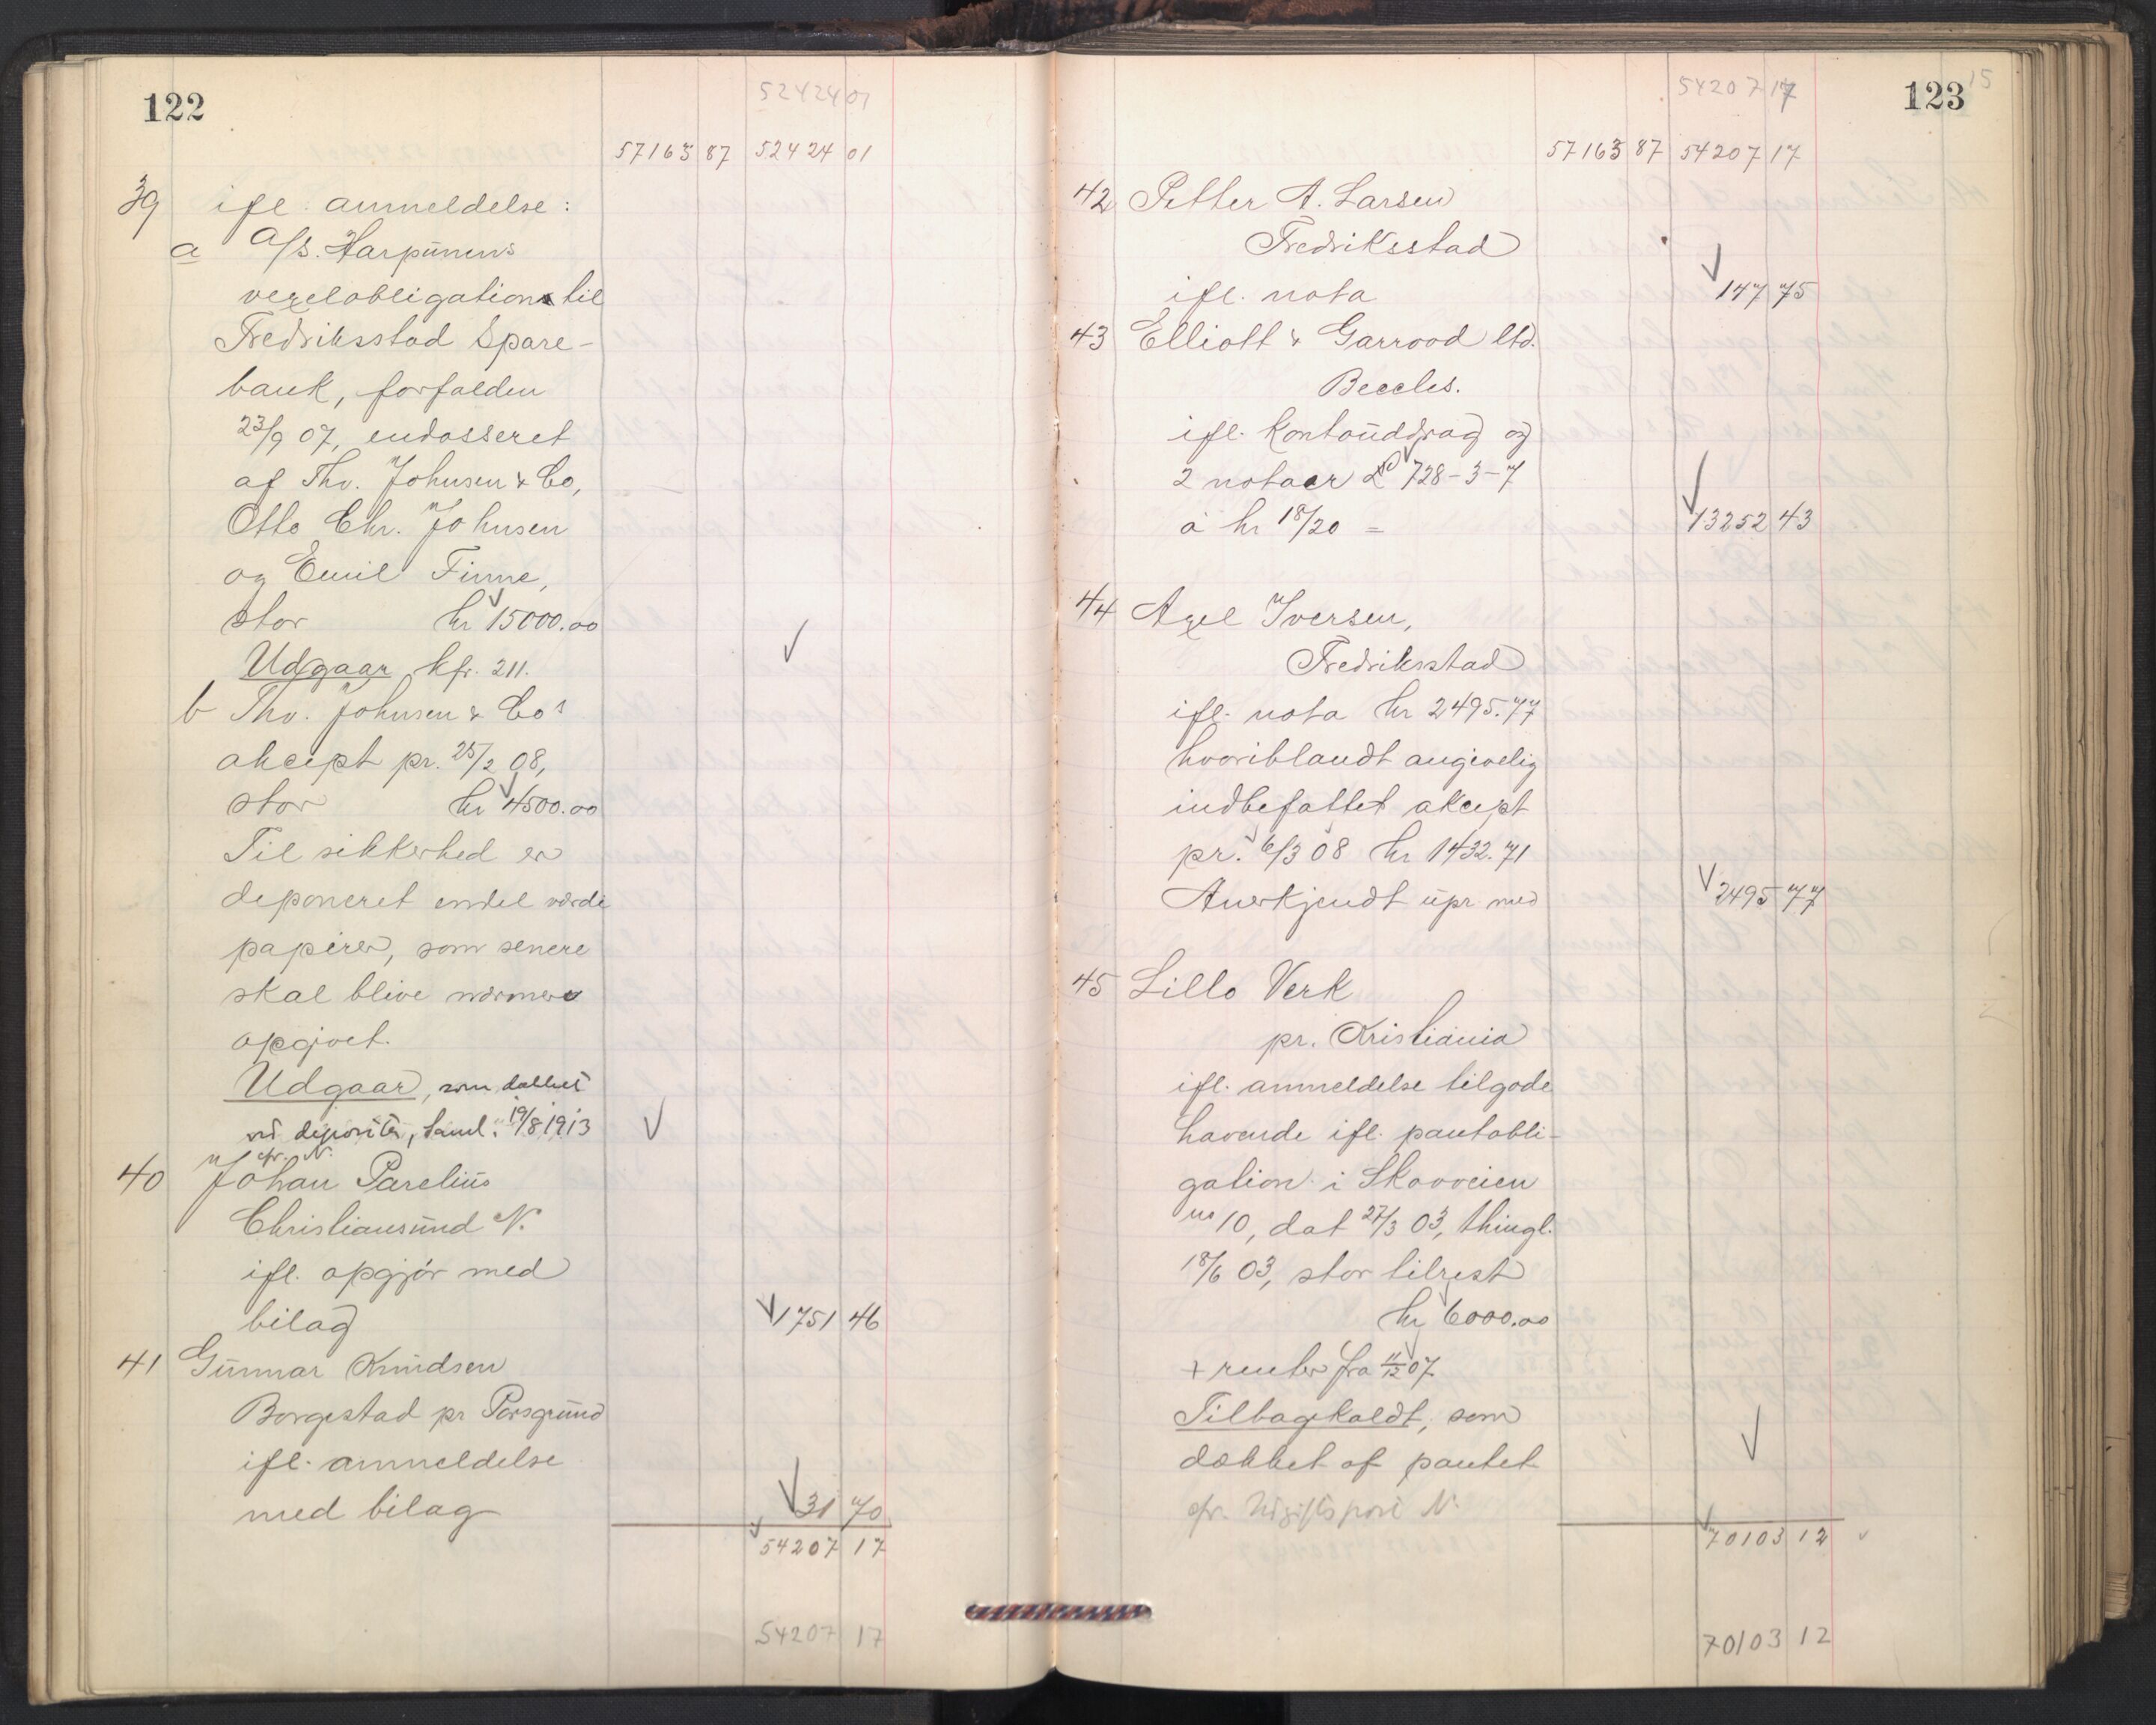 122
52424 01
57163 87 52424 01
39 ifl. anmeldelse:
a A/S. Harpunens
vexelobligation til
Fredriksstad Spare-
bank, forfalden
23/9 07, endosseret
af Thv. Johnsen & Co,
Otto Chr. Johnsen
og Emil Finne,
stor kr 15000.00
Udgaar kfr. 211.
b Thv. Johnsen & Cos
akcept pr. 25/2 08,
stor kr 4500.00
Til sikkerhed er
deponeret endel værdi
papirer, som senere
skal blive nærmere
opgivet.
Udgaar, som dækket
ved deposita, saml. 19/8 1913
cfr. N.
40 Johan Parelius
Christiansund N.
ifl. opgjør med
bilag 1751 46
41 Gunnar Knudsen
Borgestad pr Porsgrund
ifl. anmeldelse
med bilag 31 70
54207 17
54207 17
123 15
54207 17
57163 87 54207 17
42 Petter A. Larsen
Fredriksstad
ifl. nota 147 75
43 Elliott & Garrood ltd.
Beccles.
ifl. kontouddrag og
2 notaer £ 728-3-7
à kr 18/20 = 13252 43
44 Axel Iversen,
Fredriksstad
ifl. nota kr 2495.77
hvoriblandt angivelig
indbefattet akcept
pr. 6/3 08 kr 1432.71
Anerkjendt upr med 2495 77
45 Lillo Verk
pr. Kristiania
ifl. anmeldelse tilgode
havende ifl. pantobli-
gation i Skovveien
no 10, dat 27/3 03, thingl.
18/6 03, stor tilrest
kr 6000.00
+ renter fra 11/12 07
Tilbagekaldt, som
dækket af pantet
cfr. Udgiftspost N.
70103 12
70103 12